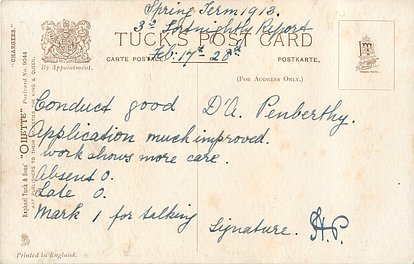 Spring Term 1913.
3rd Fortnightly Report
TUCK'S POST CARD
Feb. 17th - 28th
CARTE POSTALE.
POSTKARTE.
By Appointment.
(FOR ADDRESS ONLY.)
"CHARGERS."
Raphael Tuck & Sons' "OILETTE" Postcard No. 9044
ART PUBLISHERS TO THEIR MAJESTIES THE KING & QUEEN.
Conduct good D.A. Penberthy.
Application much improved.
work shows more care.
Absent 0.
Late 0.
Mark 1 for talking
Signature. H.P.
Printed in England.